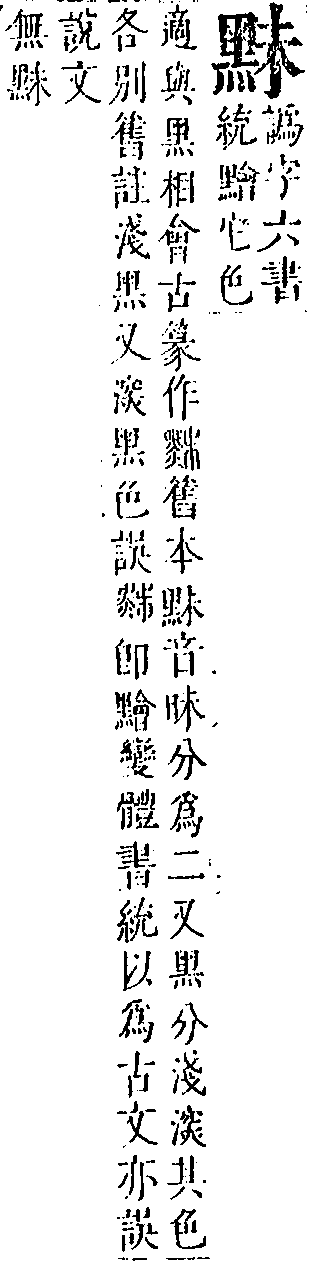 䵢
譌字六書
統䵳它色
適與黑相會古篆作舊本䵢音昧分爲二又黑分淺淡其色
各別舊註淺黑又淡黑色誤卽䵳變體書統以爲古文亦誤
說文
無䵢